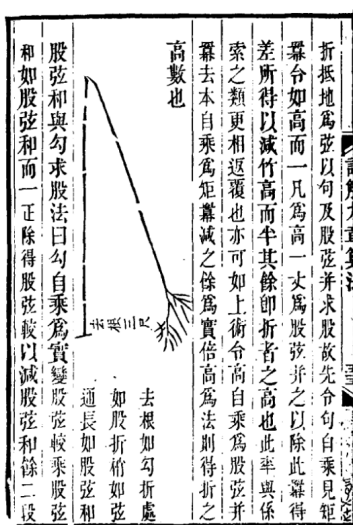 折抵地為弦以句及股弦并求股故先令句自乘見矩
羃令如高而一凡為高一丈為股弦并之以除此羃得
差所得以減竹高而半其餘即折者之高也此率與係
索之類更相返覆也亦可如上術令高自乘為股弦并
羃去本自乘為矩羃減之餘為實倍高為法則得折之
高數也
去根三尺
去根如勾折處
如股折竹如弦
通長如股弦和
股弦和與勾求股法曰勾自乘為實變股弦較乘股弦
和如股弦和而一正除得股弦較以減股弦和餘二段